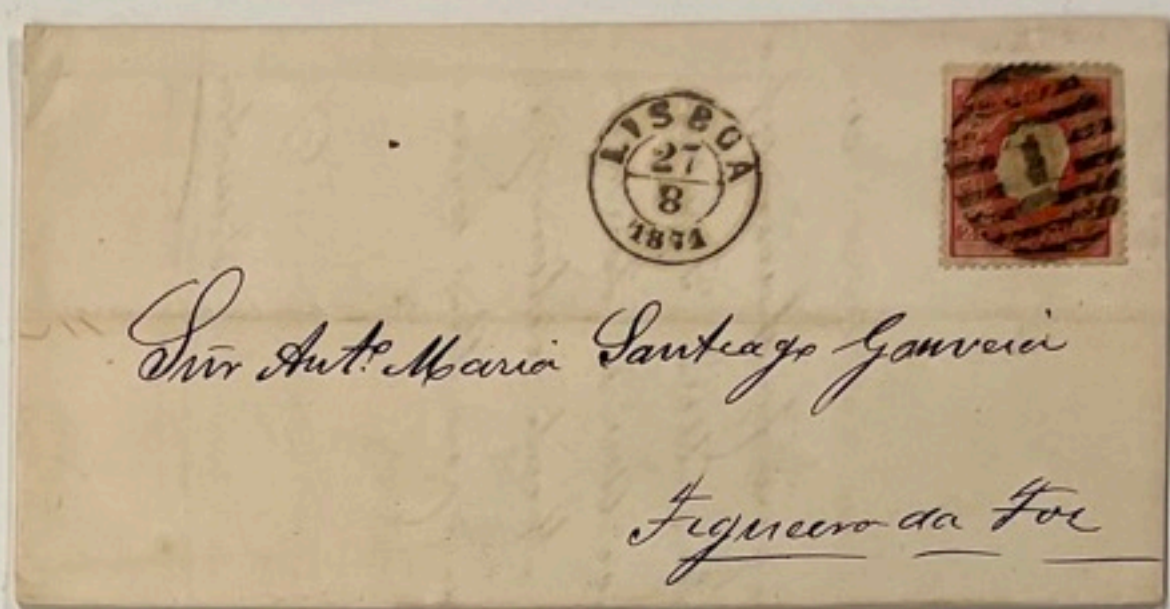 LISBOA
27
8
1871
1
Snr Antº. Maria Santiago Gouveia
Figueira da Foz